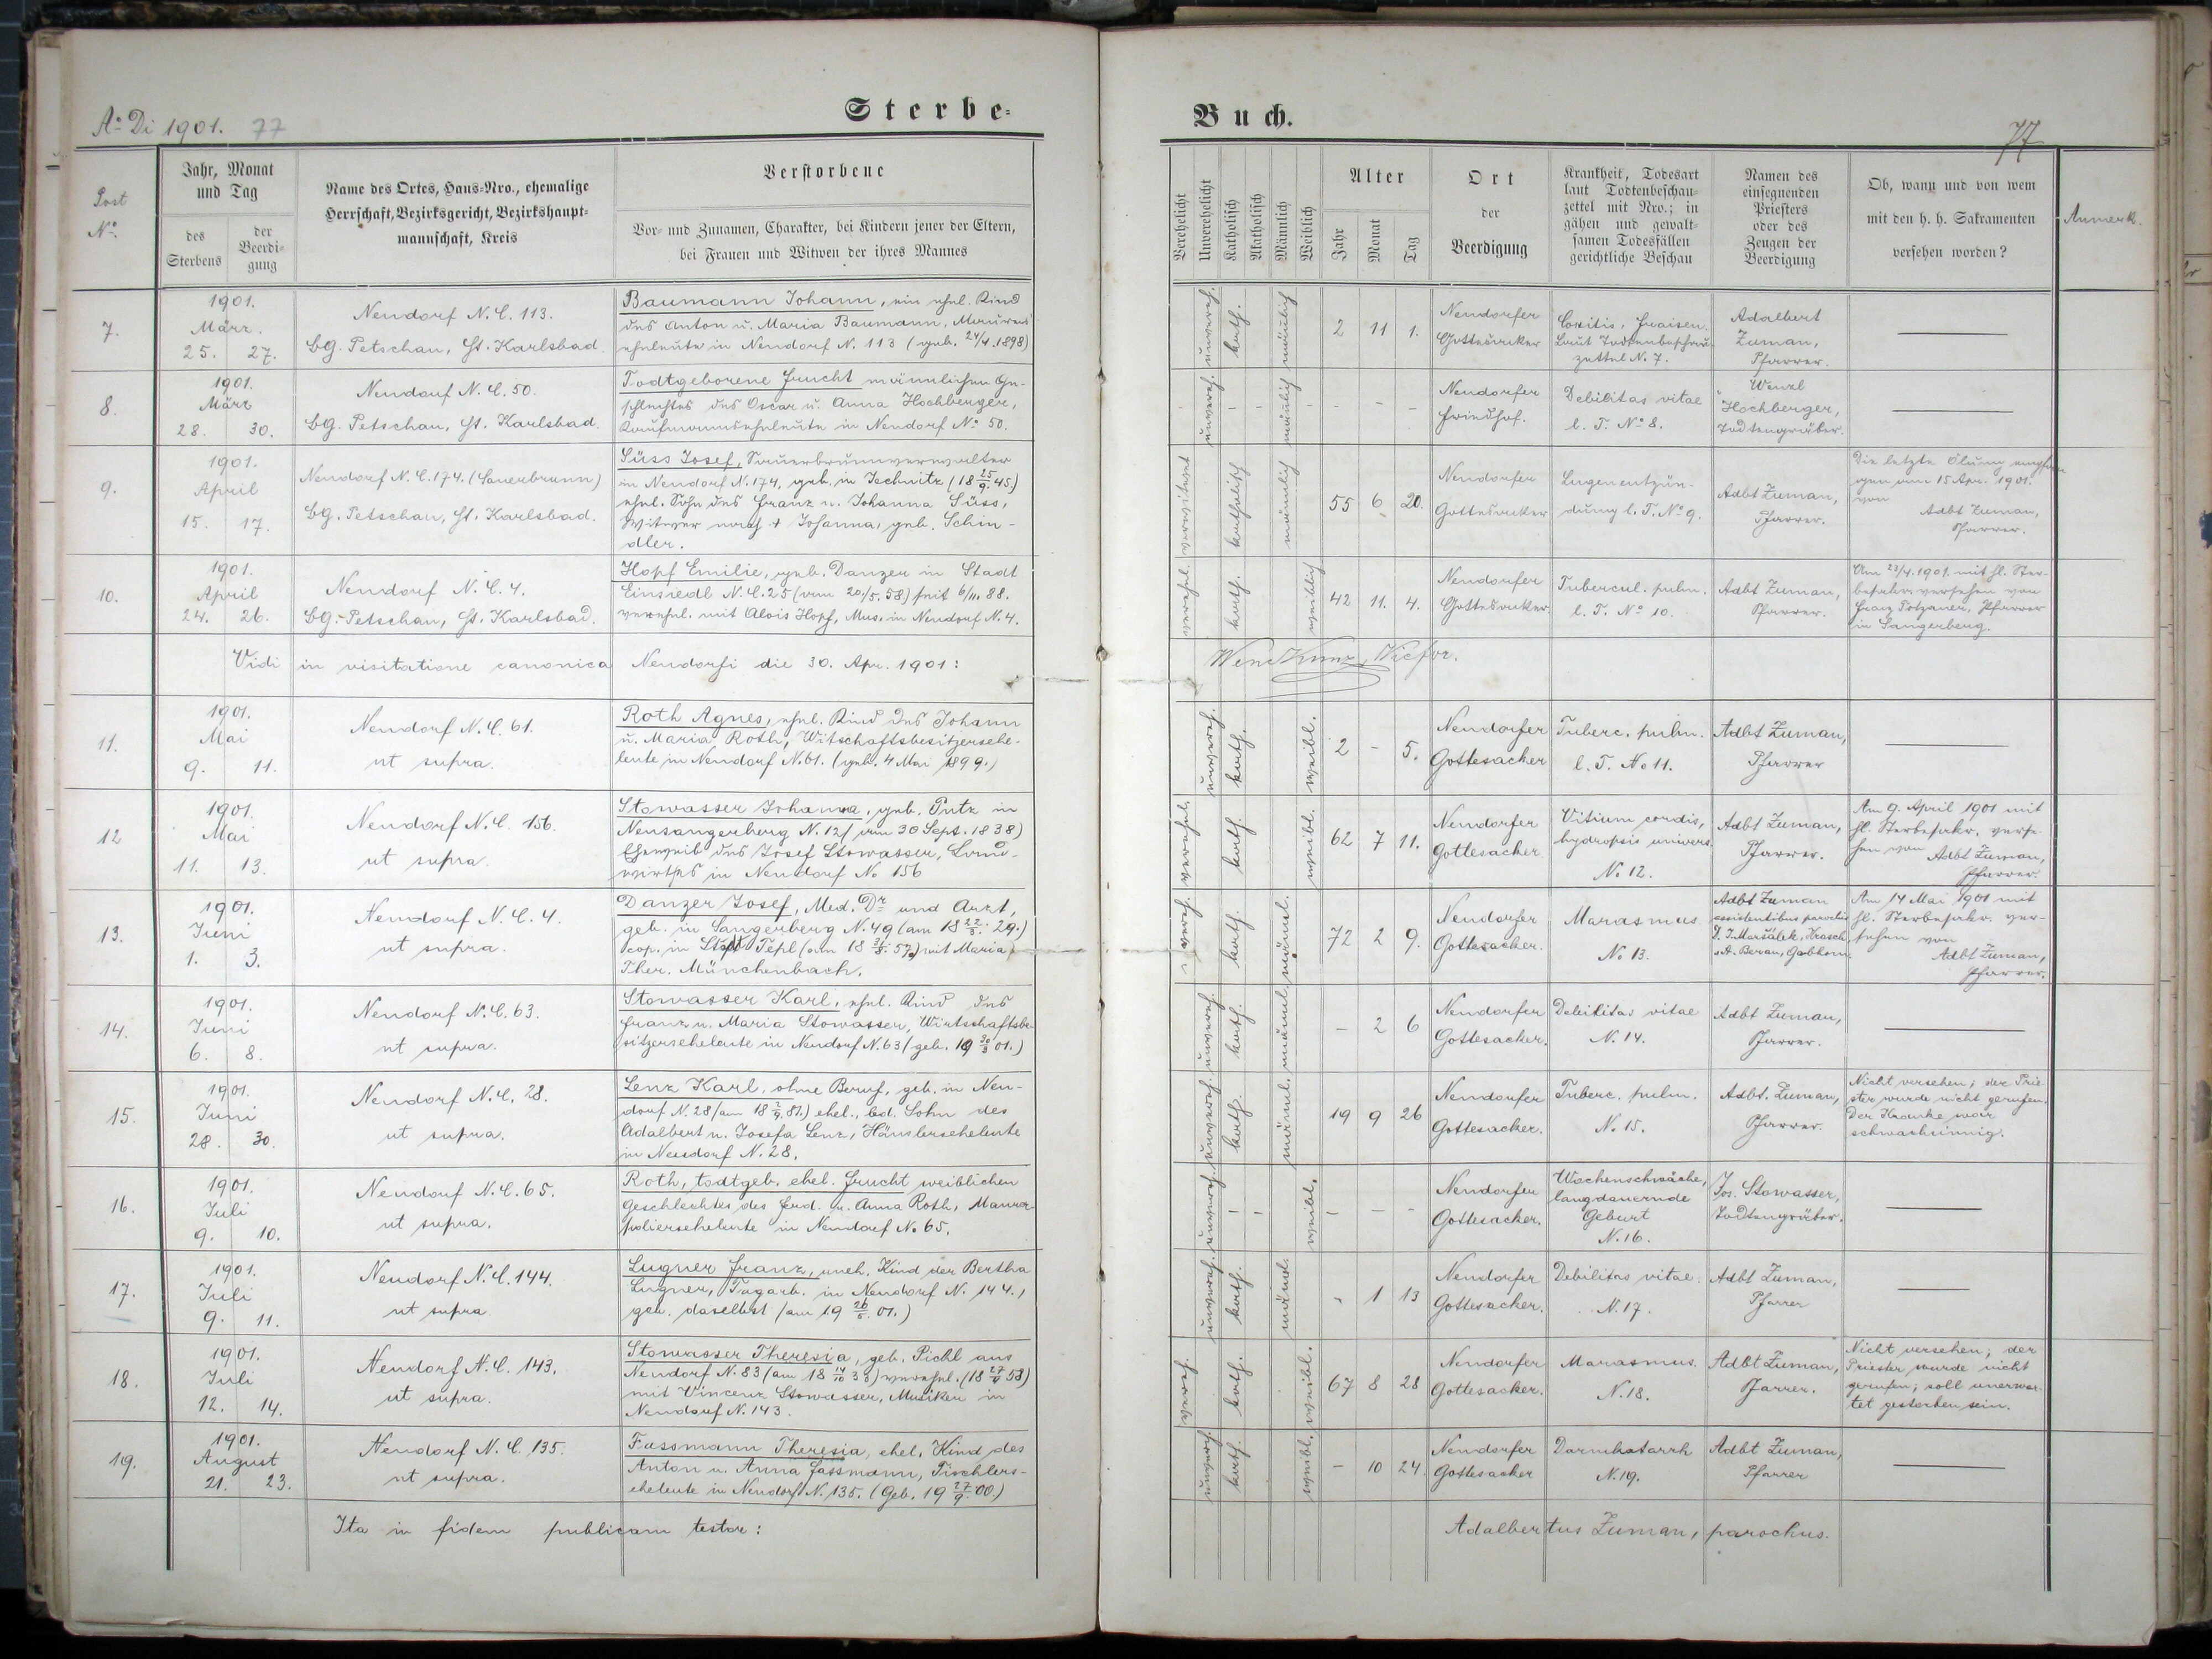 Sterbe-
Ao Di 1901. 77
Post No.
Jahr, Monat und Tag
des Sterbens
der Beerdi-gung
Name des Ortes, Haus-Nro., ehemalige
Herrschaft, Bezirksgericht, Bezirkshaupt-
mannschaft, Kreis
Verstorbene
Vor- und Zunamen, Charakter, bei Kindern jener der Eltern,
bei Frauen und Witwen der ihres Mannes
7.
1901.
März.
25. 27.
Neudorf N.C. 113.
BG. Petschau, Hst. Karlsbad.
Baumann Johann, ein ehel. Kind
des Anton u. Maria Baumann, Maurers
eheleute in Neudorf N. 113 (geb. 24/4.1898)
8.
1901.
März
28. 30.
Neudorf N.C. 50.
BG. Petschau, Hst. Karlsbad.
Todtgeborene Frucht männlichen Ge-
schlechtes des Oscar u. Anna Hochberger,
Kaufmannseheleute in Neudorf No 50.
9.
1901.
April
15. 17.
Neudorf N.C. 174. (Sauerbrunn)
BG. Petschau, Hst. Karlsbad.
Süss Josef, Sauerbrunnverwalter
in Neudorf N. 174, geb. in Technitz (18 25/9. 45)
ehel. Sohn des Franz u. Johanna Süss,
Witwer nach + Johanna, geb. Schin-
dler.
10.
1901.
April
24. 26.
Neudorf N.C. 4.
BG. Petschau, Hst. Karlsbad.
Hopf Emilie, geb. Danzer in Stadt
Einsiedl N.C. 25 (am 20./5. 58) seit 6/11. 88.
verehel. mit Alois Hopf, Mus. in Neudorf N. 4.
Vidi in visitatione canonica Neudorfi die 30. Apr. 1901:
11.
1901.
Mai
9. 11.
Neudorf N.C. 61.
ut supra.
Roth Agnes, ehel. Kind des Johann
u. Maria Roth, Witschaftsbesitzersehe-
leute in Neudorf N. 61. (geb. 4 Mai 1899.)
12
1901.
Mai
11. 13.
Neudorf N.C. 156.
ut supra.
Stowasser Johanna, geb. Putz in
Neusangerberg N. 12 (am 30 Sept. 1838)
Eheweib des Josef Stowasser, Land-
wirthes in Neudorf No 156
13.
1901.
Juni
1. 3.
Neudorf N.C. 4.
ut supra.
Danzer Josef, Med. Dr und Arzt,
geb. in Sangerberg N. 49 (am 18 22/3. 29.)
cop. in Stadt Tepl (am 18 3/8. 57.) mit Maria
Ther. Münchenbach.
14.
1901.
Juni
6. 8.
Neudorf N.C. 63.
ut supra.
Stowasser Karl, ehel. Kind des
Franz u. Maria Stowasser, Wirtschaftsbe-
sitzerseheleute in Neudorf N. 63 (geb. 19 30/3 01.)
15.
1901.
Juni
28. 30.
Neudorf N.C. 28.
ut supra.
Lenz Karl, ohne Beruf, geb. in Neu-
dorf N. 28 (am 18 2/9. 81.) ehel., led. Sohn des
Adalbert u. Josefa Lenz, Häuslerseheleute
in Neudorf N. 28.
16.
1901.
Juli
9. 10.
Neudorf N.C. 65.
ut supra.
Roth, todtgeb. ehel. Frucht weiblichen
Geschlechtes des Ferd. u. Anna Roth, Maurer
polierseheleute in Neudorf No 65.
17.
1901.
Juli
9. 11.
Neudorf N.C. 144.
ut supra
Lugner Franz, uneh. Kind der Bertha
Lugner, Tagarb. in Neudorf N. 144.,
geb. daselbst (am 19 26/5. 01.)
18.
1901.
Juli
12. 14.
Neudorf N.C. 143.
ut supra.
Stowasser Theresia, geb. Pichl aus
Neudorf N. 83 (am 18 14/10 33) verehel. (18 27/4 58)
mit Vincenz Stowasser, Musiker in
Neudorf N. 143.
19.
1901.
August
21. 23.
Neudorf N.C. 135.
ut supra.
Fassmann Theresia, ehel. Kind des
Anton u. Anna Fassmann, Tischlers-
eheleute in Neudorf N. 135. (Geb. 19 27/9. 00)
Ita in fidem publicam testor:
Buch.
77
Verehelicht
Unverehelicht
Katholisch
Akatholisch
Männlich
Weiblich
Alter
Jahr
Monat
Tag
Ort
der
Beerdigung
Krankheit, Todesart
laut Todtenbeschau-
zettel mit Nro.; in
gähen und gewalt-
samen Todesfällen
gerichtliche Beschau
Namen des
einsegnenden
Priesters
oder des
Zeugen der
Beerdigung
Ob, wann und von wem
mit den h. h. Sakramenten
versehen worden?
Anmerk.
unvereh. kath. männlich 2 11 1.
Neudorfer
Gottesacker
Coxitis, Fraisen.
Laut Todtenbeschau-
zettel N. 7.
Adalbert
Zuman,
Pfarrer.
unvereh. männlich - - -
Neudorfer
Friedhof.
Debilitas vitae
l. T. No 8.
Wenzl
Hochberger,
Todtengräber.
verwitwet katholisch männlich 55 6 20.
Neudorfer
Gottesacker
Lungenentzün-
dung l. T. No 9.
Adbt Zuman,
Pfarrer.
Die letzte Ölung empfan
gen am 15 Apr. 1901.
von
Adbt Zuman,
Pfarrer.
verehel. kath. weiblich 42 11. 4.
Neudorfer
Gottesacker
Tubercul. pulm.
l. T. No 10.
Adbt Zuman,
Pfarrer.
Am 23/4. 1901. mit hl. Ster-
besakr. versehen von
Franz Totzauer, Pfarrer
in Sangerberg.
unvereh. kath. weibl. 2 - 5.
Neudorfer
Gottesacker
Tuberc. pulm.
l. T. No 11.
Adbt Zuman,
Pfarrer
verehel. kath. weibl. 62 7 11.
Neudorfer
Gottesacker
Vitium cordis,
hydropsis univers.
No 12.
Adbt Zuman,
Pfarrer.
Am 9. April 1901 mit
hl. Sterbesakr. verse-
hen von Adbt Zuman,
Pfarrer.
vereh. kath. männl. 72 2 9.
Neudorfer
Gottesacker.
Marasmus
No 13.
Adbt Zuman
assistentibus
J. Maršálek,
A. Beran,
Am 14 Mai 1901 mit
hl. Sterbesakr. ver-
sehen von
Adbt Zuman,
Pfarrer.
unvereh. kath. männl. - 2 6
Neudorfer
Gottesacker.
Debilitas vitae
N. 14.
Adbt Zuman,
Pfarrer.
unvereh. kath. männl. 19 9 26
Neudorfer
Gottesacker.
Tuberc. pulm.
No 15.
Adbt. Zuman,
Pfarrer.
Nicht versehen; der Prie-
ster wurde nicht gerufen.
Der Kranke war
schwachsinnig.
unvereh. weibl. - - -
Neudorfer
Gottesacker.
Wochenschwäche,
langdauernde
Geburt
N. 16.
Jos. Stowasser,
Todtengräber.
unvereh. kath. männl. 1 13
Neudorfer
Gottesacker.
Debilitas vitae.
N. 17.
Adbt Zuman,
Pfarrer
vereh. kath. weibl. 67 8 28
Neudorfer
Gottesacker.
Marasmus.
N. 18.
Adbt Zuman,
Pfarrer.
Nicht versehen; der
Priester wurde nicht
gerufen; soll unerwar-
tet gestorben sein.
unvereh. kath. weibl. - 10 24.
Neudorfer
Gottesacker
Darmkatarrh
N. 19.
Adbt Zuman,
Pfarrer
Adalbertus Zuman, parochus.